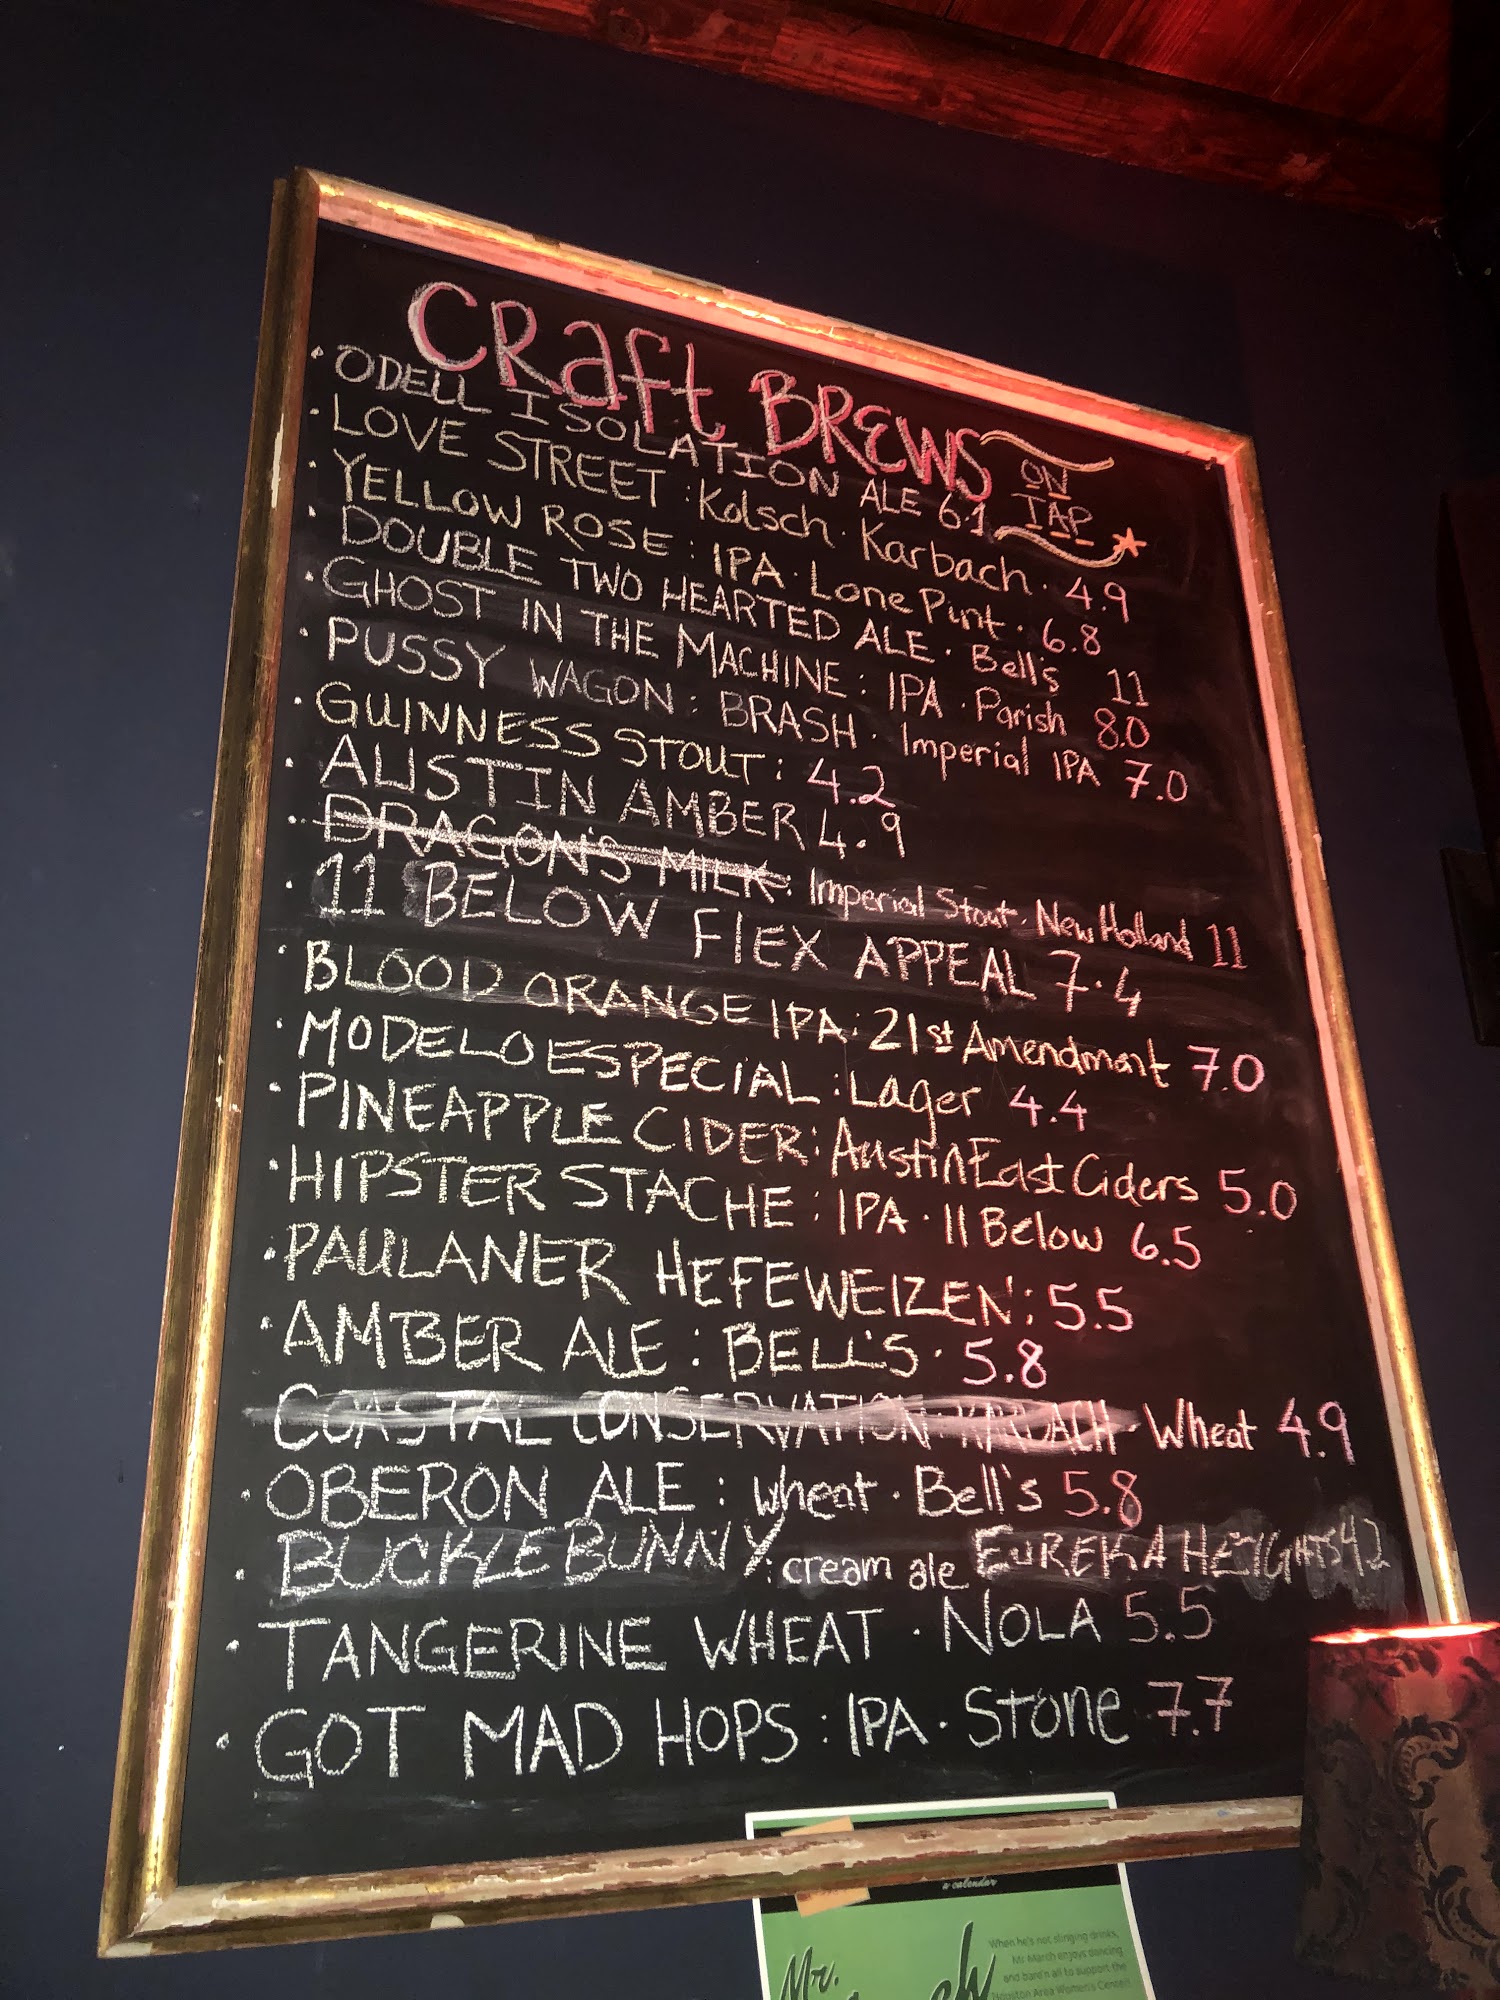 CRaft BREWS
ON
TAP
· ODELL ISOLATION ALE 6.1
· LOVE STREET : Kolsch · Karbach · 4.9
· YELLOW ROSE : IPA · Lone Pint · 6.8
· DOUBLE TWO HEARTED ALE · Bell's 11
· GHOST IN THE MACHINE : IPA · Parish 8.0
· PUSSY WAGON : BRASH · Imperial IPA 7.0
· GUINNESS STOUT : 4.2
· AUSTIN AMBER 4.9
· DRAGON'S MILK : Imperial Stout · New Holland 11
· 11 BELOW FlEX APPEAL 7.4
· BLOOD ORANGE IPA : 21st Amendmant 7.0
· MODELO ESPECIAL : Lager 4.4
· PINEAPPLE CIDER : Austin East Ciders 5.0
· HIPSTER STACHE : IPA · 11 Below 6.5
· PAULANER HEFEWEIZEN : 5.5
· AMBER ALE : BELL'S · 5.8
COASTAL CONSERVATION · KARBACH · Wheat 4.9
· OBERON ALE : wheat · Bell's 5.8
· BUCKLE BUNNY : cream ale EUREKA HEIGHTS 4.2
· TANGERINE WHEAT · NOLA 5.5
· GOT MAD HOPS : IPA · Stone 7.7
a calendar
When he's not slinging drinks,
Mr March enjoys dancing
and bard'n all to support the
Houston Area Women's Center!
Mr.